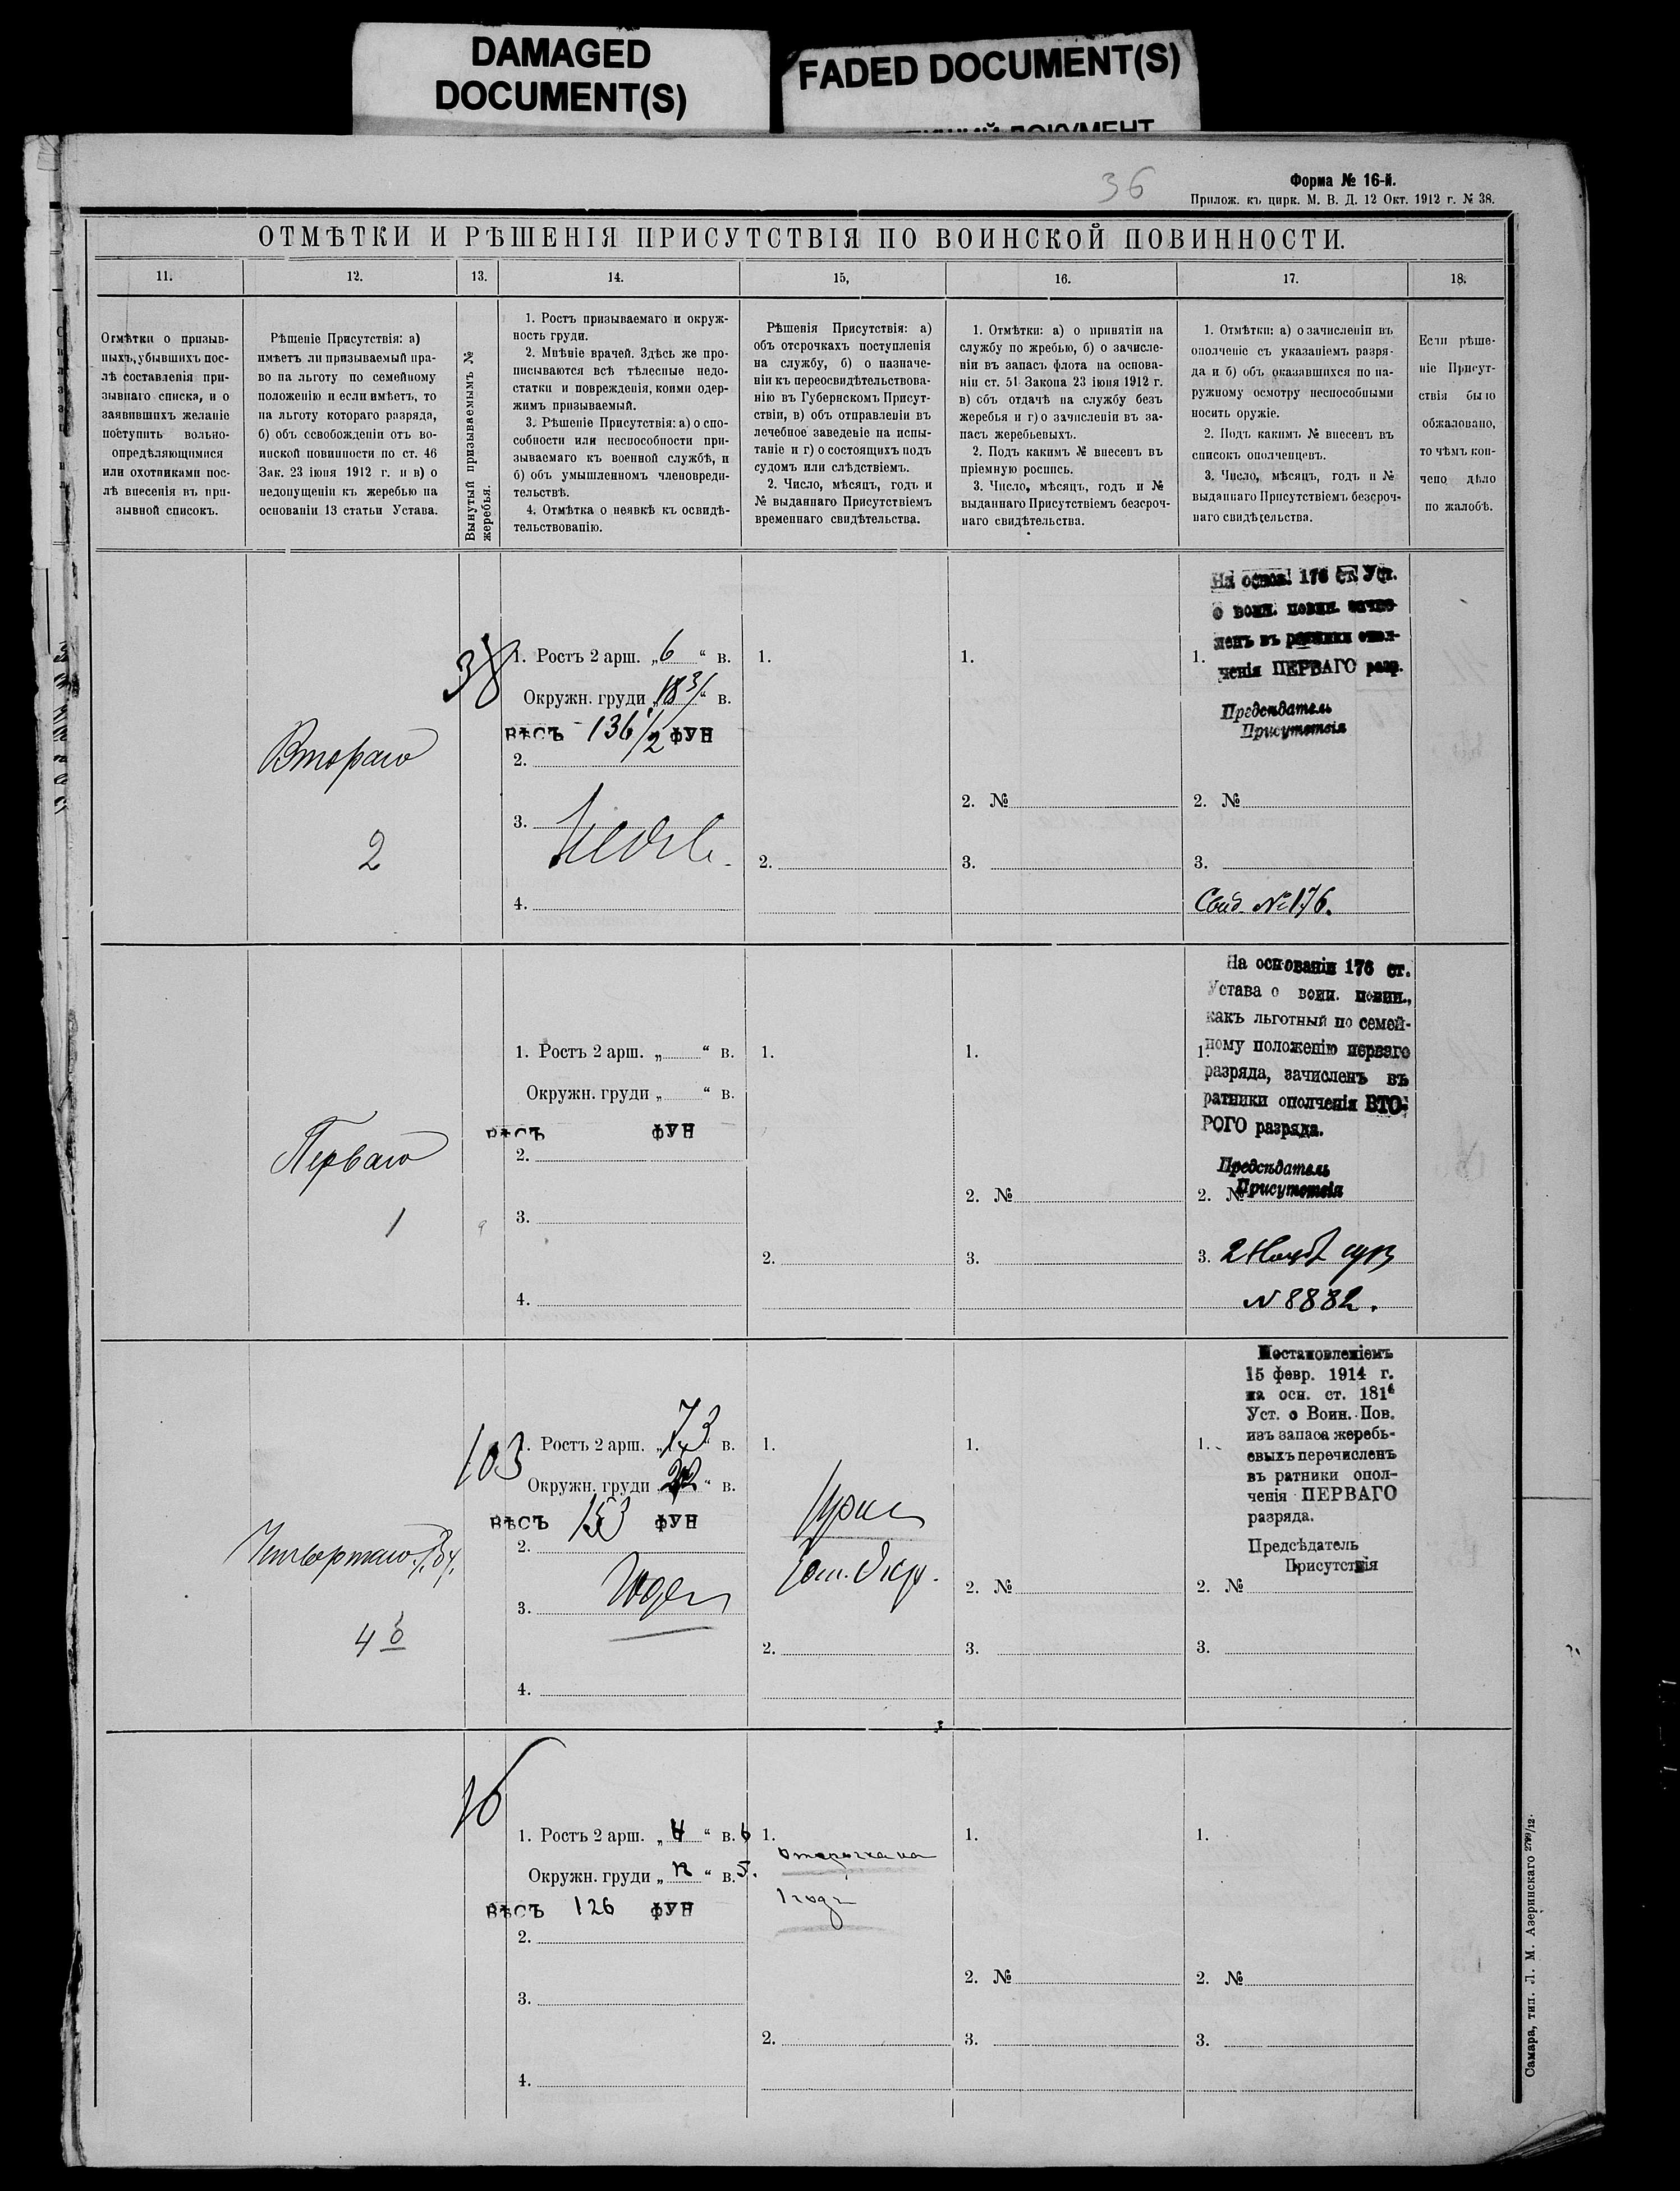 DAMAGED
DOCUMENT(S)
FADED DOCUMENT(S)
36
Форма № 16-й.
Прилож. къ цирк. М. В. Д. 12 Окт. 1912 г. № 38.
ОТМѢТКИ И РѢШЕНІЯ ПРИСУТСТВІЯ ПО ВОИНСКОЙ ПОВИННОСТИ.
11.
12.
13.
14.
15,
16.
17.
18.
Отмѣтки о призыв-
ныхъ, убывшихъ пос-
лѣ составленія при-
зывнаго списка, и о
заявившихъ желаніе
поступить вольно-
опредѣляющимися
или охотниками пос-
лѣ внесенія въ при-
зывной списокъ.
Рѣшеніе Присутствія: а)
имѣетъ ли призываемый пра-
во на льготу по семейному
положенію и если имѣетъ, то
на льготу котораго разряда,
б) объ освобожденіи отъ во-
инской повинности по ст. 46
Зак. 23 іюня 1912 г. и в) о
недопущеніи къ жеребью на
основаніи 13 статьи Устава.
Вынутый призываемымъ №
жеребья.
1. Ростъ призываемаго и окруж-
ность груди.
2. Мнѣніе врачей. Здѣсь же про-
писываются всѣ тѣлесные недо-
статки и поврежденія, коими одер-
жимъ призываемый.
3. Рѣшеніе Присутствія: а) о спо-
собности или неспособности при-
зываемаго къ военной службѣ, и
б) объ умышленномъ членовреди-
тельствѣ.
4. Отмѣтка о неявкѣ къ освидѣ-
тельствованію.
Рѣшенія Присутствія: а)
объ отсрочкахъ поступленія
на службу, б) о назначе-
ніи къ переосвидѣтельствова-
нію въ Губернскомъ Присут-
ствіи, в) объ отправленіи въ
лечебное заведеніе на испы-
таніе и г) о состоящихъ подъ
судомъ или слѣдствіемъ.
2. Число, мѣсяцъ, годъ и
№ выданнаго Присутствіемъ
временнаго свидѣтельства.
1. Отмѣтки: а) о принятіи на
службу по жребью, б) о зачисле-
ніи въ запасъ флота на основа-
ніи ст. 51 Закона 23 іюня 1912 г.
в) объ отдачѣ на службу безъ
жеребья и г) о зачисленіи въ за-
пасъ жеребьевыхъ.
2. Подъ какимъ № внесенъ въ
пріемную роспись.
3. Число, мѣсяцъ, годъ и №
выданнаго Присутствіемъ безсроч-
наго свидѣтельства.
1. Отмѣтки: а) о зачисленіи въ
ополченіе съ указаніемъ разря-
да и б) объ оказавшихся по на-
ружному осмотру неспособными
носить оружіе.
2. Подъ какимъ № внесенъ въ
списокъ ополченцевъ.
3. Число, мѣсяцъ, годъ и №
выданнаго Присутствіемъ безсроч-
наго свидѣтельства.
Если рѣше-
ніе Присут-
ствія было
обжаловано,
то чѣмъ кон-
чено дѣло
по жалобѣ.
Втораго
2
38
1. Ростъ 2 арш. „6“ в.
Окружн. груди „18 3/“ в.
ВѢСЪ 136 1/2 ФУН
2.
3.
4.
1.
2.
1.
2. №
3.
На основ. 176 ст. Уст.
о воин. повин. зачис-
ленъ въ ратники опол-
1.
ченія ПЕРВАГО разр.
Предсѣдатель
Присутствія
2. №
3.
Свид. № 176.
Перваго
1
1. Ростъ 2 арш. „ “ в.
Окружн. груди „ “ в.
ВѢСЪ ФУН
2.
3.
4.
1.
2.
1.
2. №
3.
На основаніи 176 ст.
Устава о воин. повин.,
какъ льготный по семей-
1. ному положенію перваго
разряда, зачисленъ въ
ратники ополченія ВТО-
РОГО разряда.
Предсѣдатель
2. № Присутствія
3. 2 Нояб 1913
№ 8882.
Четвертаго
4 б
103
1. Ростъ 2 арш. „ “ в.
Окружн. груди „22“ в.
ВѢСЪ 153 ФУН
2.
3. Годен
4.
1.
2.
1.
2. №
3.
Постановленіемъ
15 февр. 1914 г.
на осн. ст. 181⁴
Уст. о Воин. Пов.
изъ запаса жеребь-
евыхъ перечисленъ
въ ратники опол-
ченія ПЕРВАГО
разряда.
Предсѣдатель
Присутствія
1.
2. №
3.
1. Ростъ 2 арш. „4“ в. 6
Окружн. груди „ “ в. 5.
ВѢСЪ 126 ФУН
2.
3.
4.
1.
Отсрочка на
1 годъ
2.
1.
2. №
3.
1.
2. №
3.
Самара, тип. Л. М. Азеринскаго 2799/12.